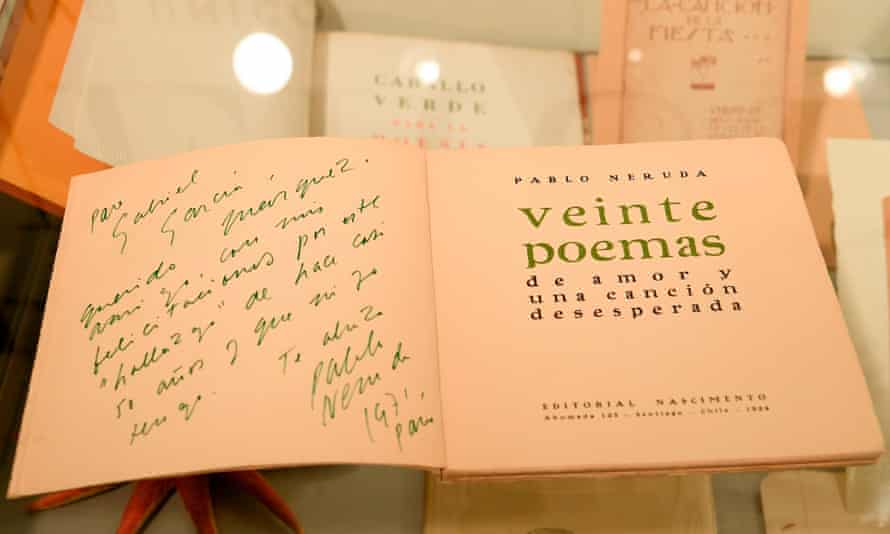 LA CANCION
DE LA
FIESTA...
CABALLO
VERDE
PARA LA
POESIA
para
Gabriel
García
Marquez.
querido
amigo, con mis
felicitaciones por este
"hallazgo" de hace casi
50 años y que ni yo
tengo.
Te abraza
Pablo
Neruda
1971
Paris
PABLO NERUDA
veinte
poemas
de amor y
una canción
desesperada
EDITORIAL NASCIMENTO
Ahumada 125 - Santiago - Chile - 1924